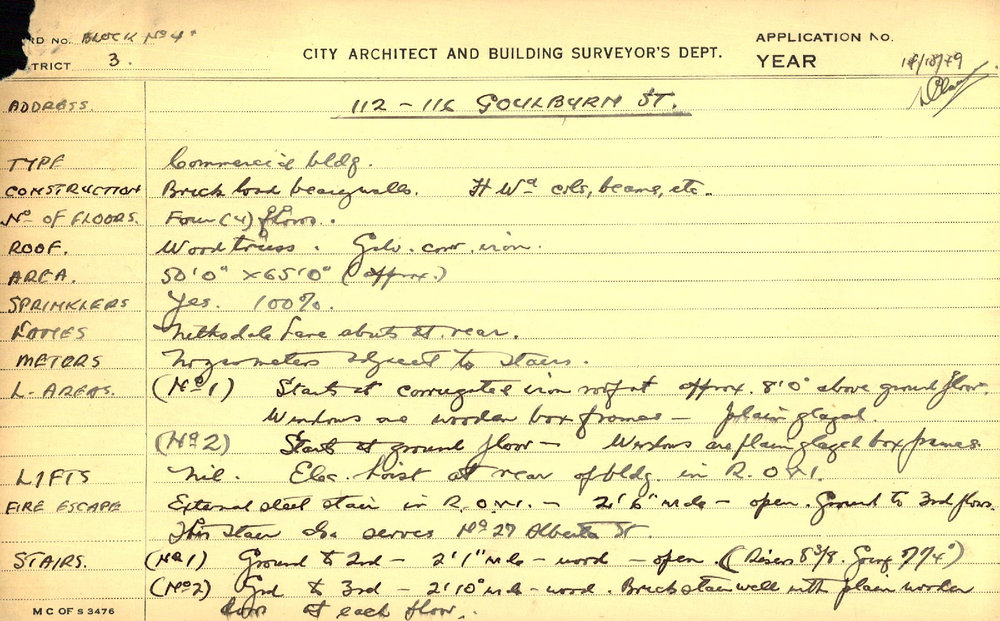 RD No. BLOCK No 4
CITY ARCHITECT AND BUILDING SURVEYOR'S DEPT.
APPLICATION No.
TRICT 3.
YEAR
ADDRESS 112 - 116 GOULBURN ST.
TYPE Commercial bldg.
CONSTRUCTION Brick load bearg walls. H Wd cols, beams, etc.
No OF FLOORS. Four (4) floors.
ROOF. Wood truss. Galv. corr. iron.
AREA. 50'0" x 65'0" (approx.)
SPRINKLERS Yes. 100%.
Nithsdale Lane abuts at rear.
METERS No gas meters adjacent to stairs.
L-AREAS. (No 1) Starts at corrugated iron roof at approx. 8'0" above ground floor.
Windows are wooden box frames - plain glazed.
(No 2) Starts at ground floor - Windows are plain glazed box frames.
LIFTS Nil. Elec. hoist at rear of bldg. in R.O.W.
FIRE ESCAPE External steel stair in R.O.W. - 2'6" wide - open. Ground to 3rd floors.
This stair also serves No 27 Alberta St.
STAIRS. (No 1) Ground to 2nd - 2'1" wide - wood - open. (Risers 8 3/8. Going 7 3/4")
(No 2) Grd to 3rd - 2'10" wide - wood. Brick stair well with plain wooden
doors at each floor.
M C OF S 3476